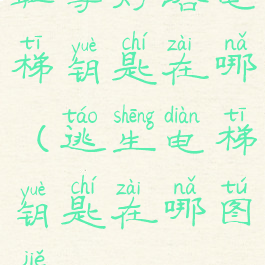 tī yuè chí zài nǎ
梯钥匙在哪
táo shēng diàn tī
(逃生电梯
yuè chí zài nǎ tú
钥匙在哪图
jiě